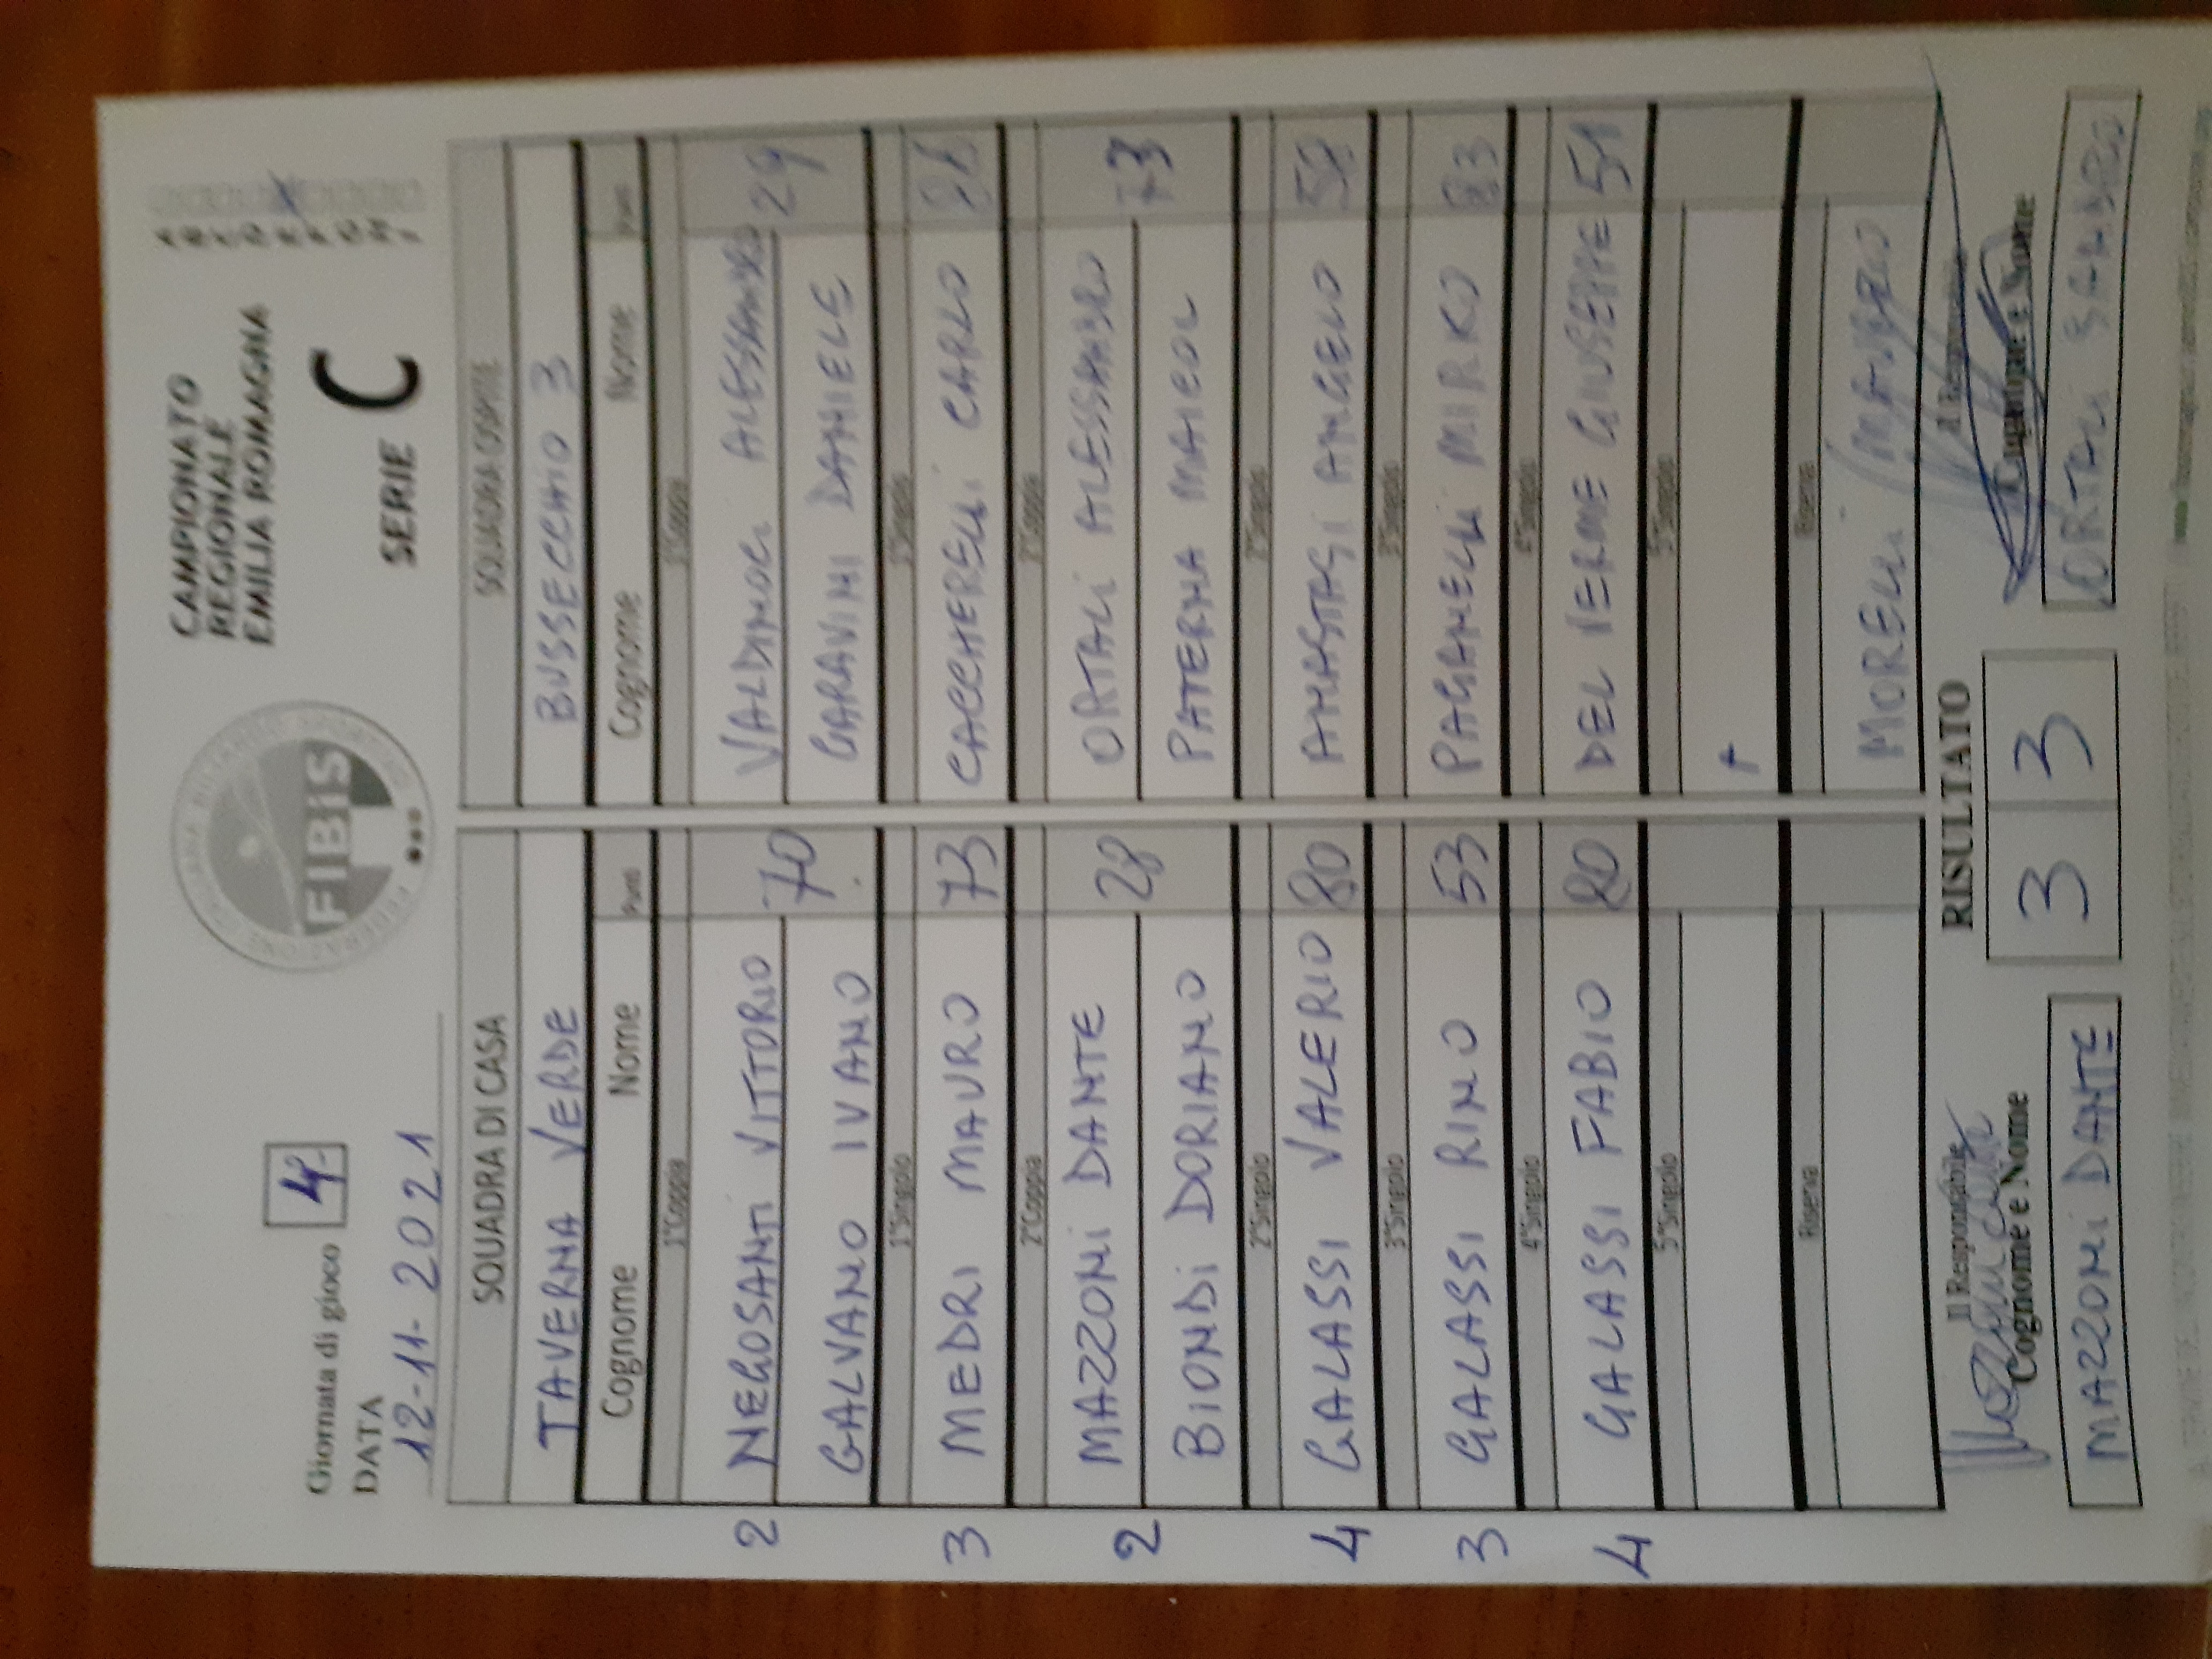 CAMPIONATO
REGIONALE
EMILIA ROMAGNA
SERIE C
FIBiS
Giornata di gioco 4
DATA
12-11-2021
SQUADRA DI CASA
SQUADRA OSPITE
TAVERNA VERDE
BUSSECCHIO 3
Cognome Nome Punti
Cognome Nome Punti
1°Coppia
1°Coppia
2 NEGOSANTI VITTORIO 70
VALDINOCI ALESSANDRO 29
GALVANO IVANO
GARAVINI DANIELE
1°Singolo
1°Singolo
3 MEDRI MAURO 73
CACCHERELLI CARLO
2°Coppia
2°Coppia
2 MAZZONI DANTE 28
ORTALI ALESSANDRO 73
BIONDI DORIANO
PATERNA MAICOL
2°Singolo
2°Singolo
4 GALASSI VALERIO 80
ANASTASI ANGELO
3°Singolo
3°Singolo
3 GALASSI RINO 53
PAGANELLI MIRKO 83
4°Singolo
4°Singolo
4 GALASSI FABIO 80
DEL VERME GIUSEPPE 51
5°Singolo
5°Singolo
Riserva
Riserva
MORELLI MAURO
Il Responsabile
RISULTATO
Il Responsabile
Cognome e Nome
3 3
Cognome e Nome
MAZZONI DANTE
ORTALI SANDRO